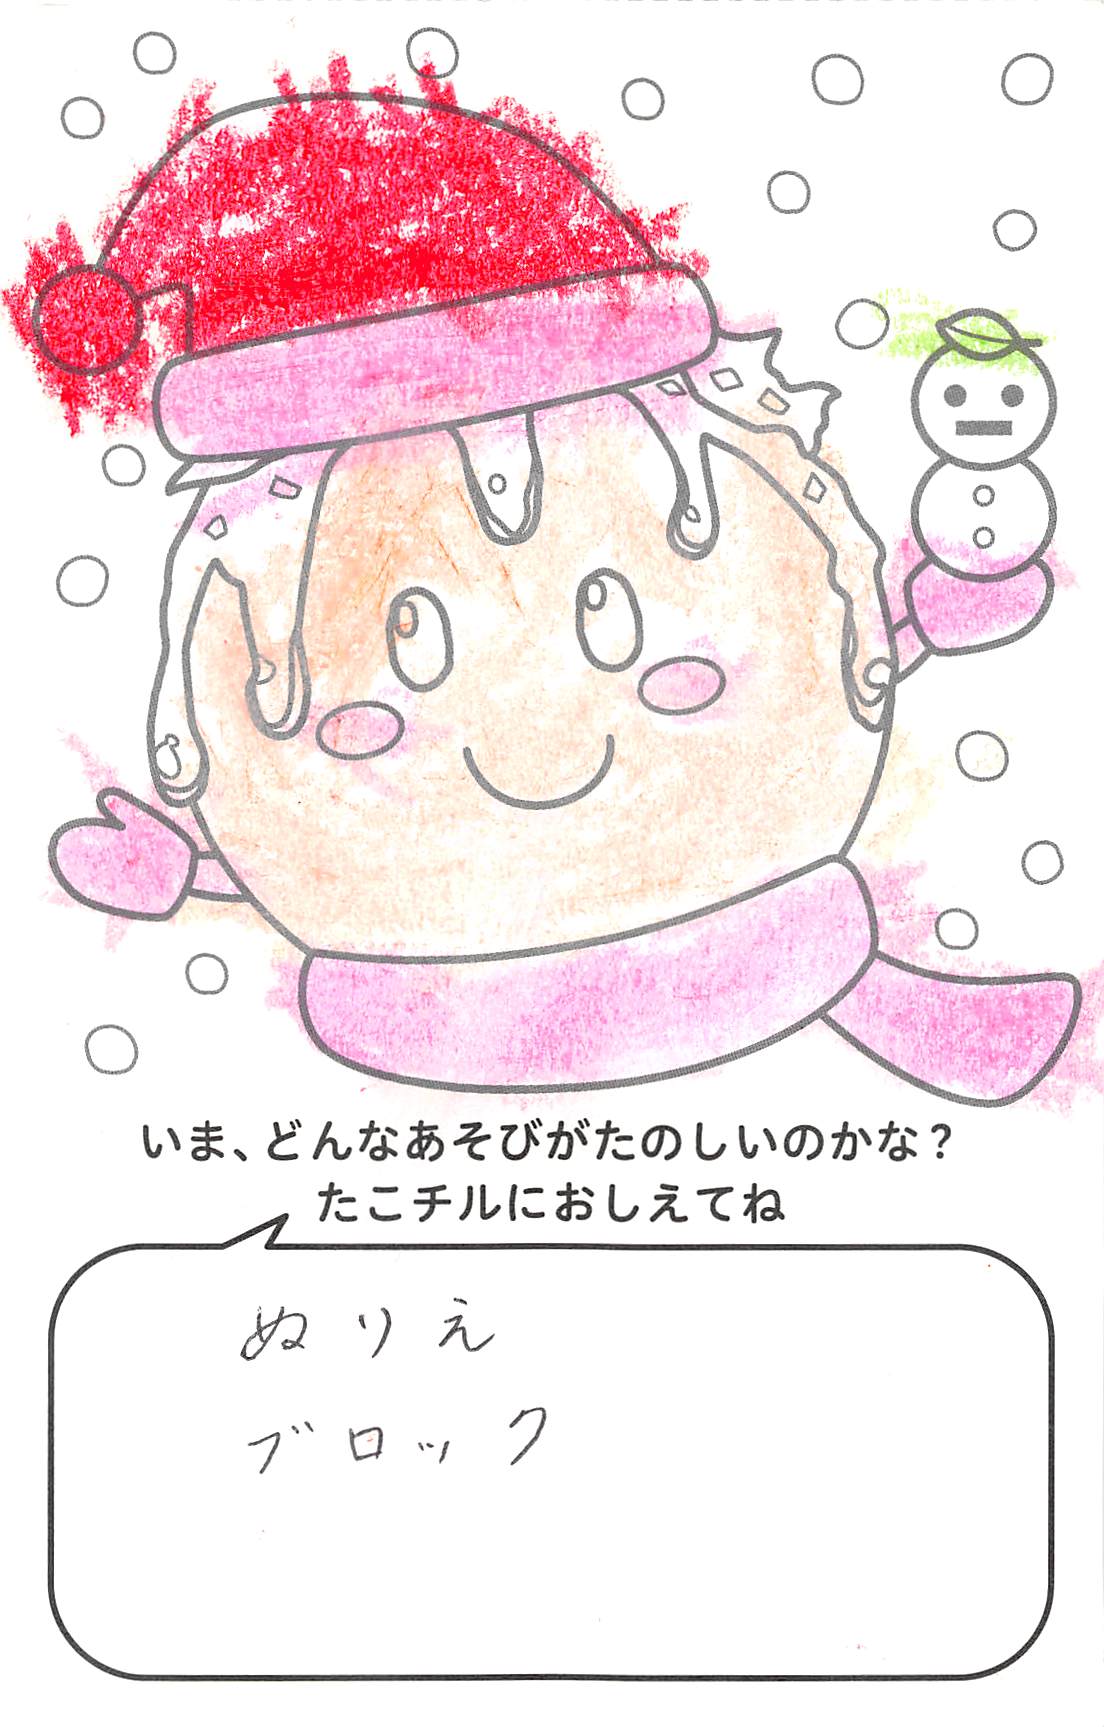 いま、どんなあそびがたのしいのかな？
たこチルにおしえてね
ぬりえ
ブロック